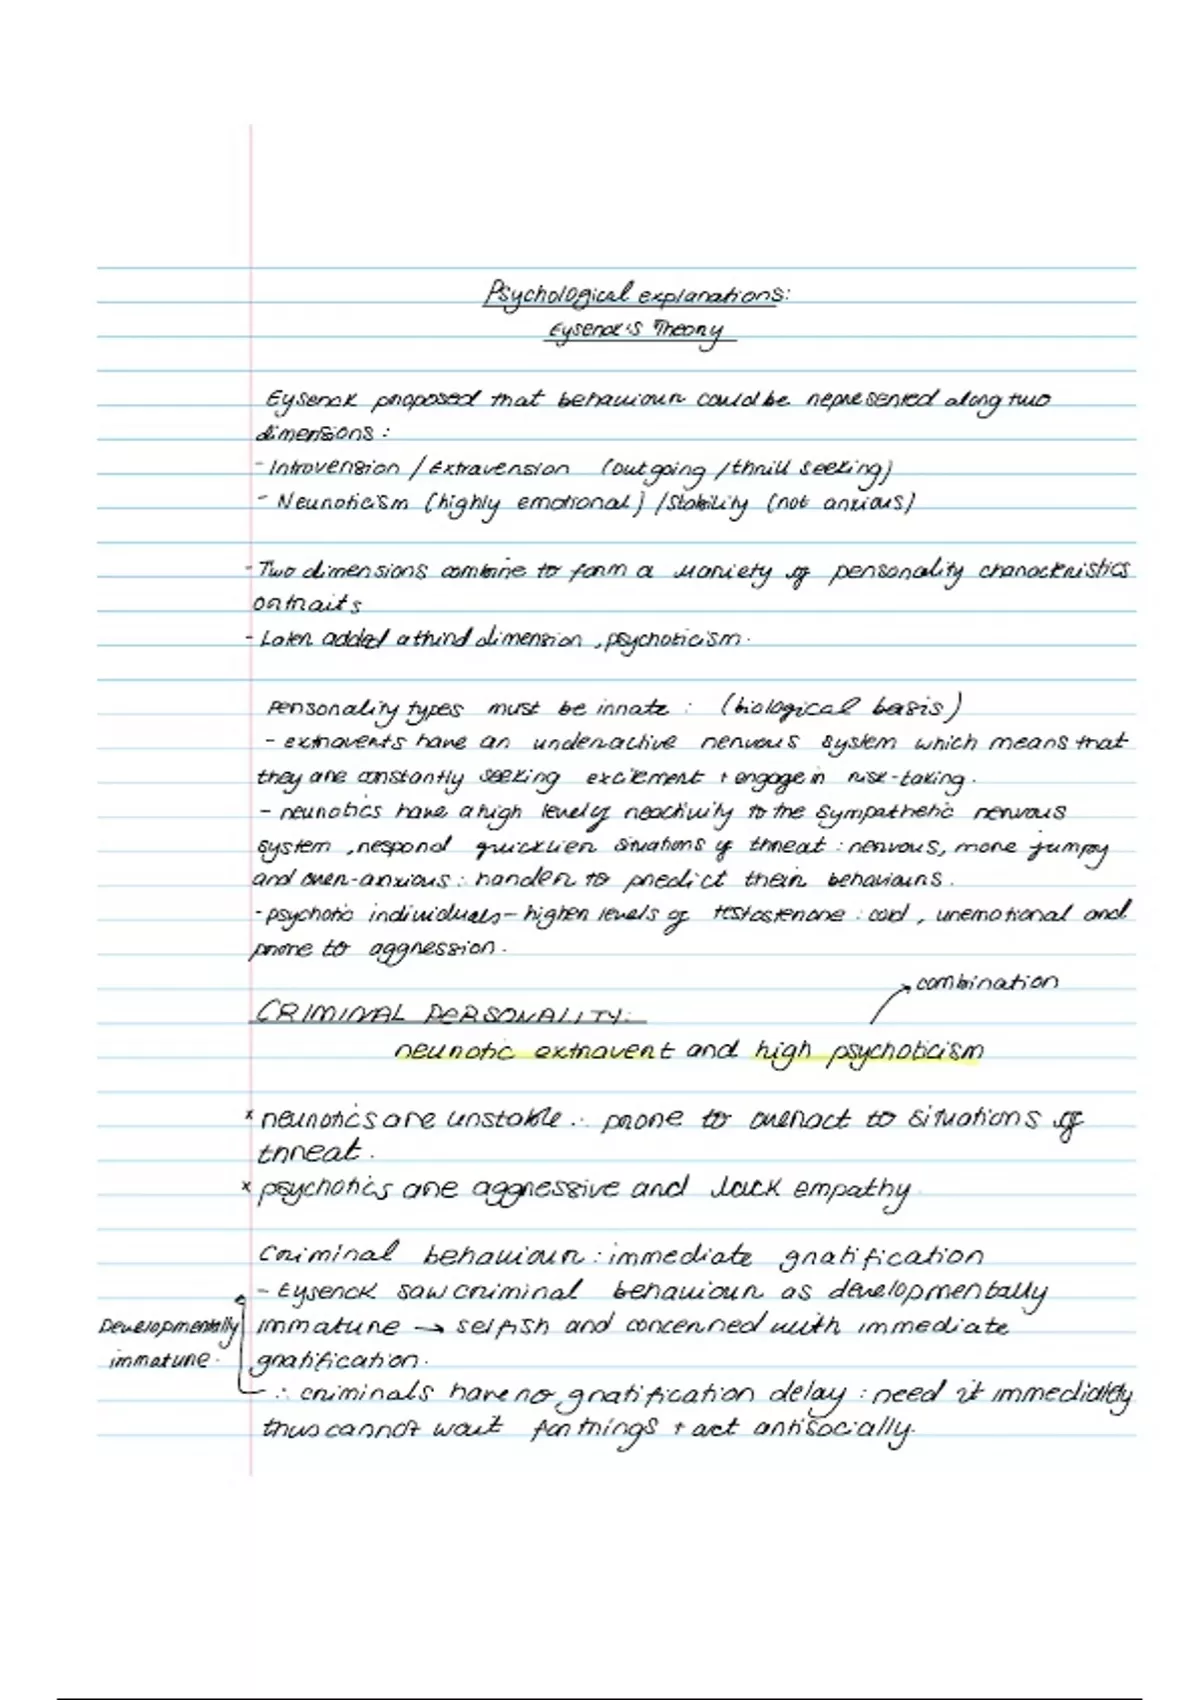 Psychological explanations:
Eysenck's Theory
Eysenck proposed that behaviour could be represented along two
dimensions:
- Introversion / Extraversion (outgoing / thrill seeking)
- Neuroticism (highly emotional) / Stability (not anxious)
- Two dimensions combine to form a variety of personality characteristics
or traits
- Later added a third dimension, psychoticism.
Personality types must be innate: (biological basis)
- extraverts have an underactive nervous system which means that
they are constantly seeking excitement + engage in risk-taking.
- neurotics have a high level of reactivity to the sympathetic nervous
system, respond quicklier situations of threat: nervous, more jumpy
and over-anxious: harder to predict their behaviours.
- psychotic individuals - higher levels of testosterone: cold, unemotional and
prone to aggression.
combination
CRIMINAL PERSONALITY:
neurotic extravert and high psychoticism
x neurotics are unstable ∴ prone to overact to situations of
threat.
x psychotics are aggressive and lack empathy
Criminal behaviour: immediate gratification
- Eysenck saw criminal behaviour as developmentally
immature → selfish and concerned with immediate
gratification.
Developmentally
immature.
∴ criminals have no gratification delay: need it immediately
thus cannot wait for things + act antisocially.